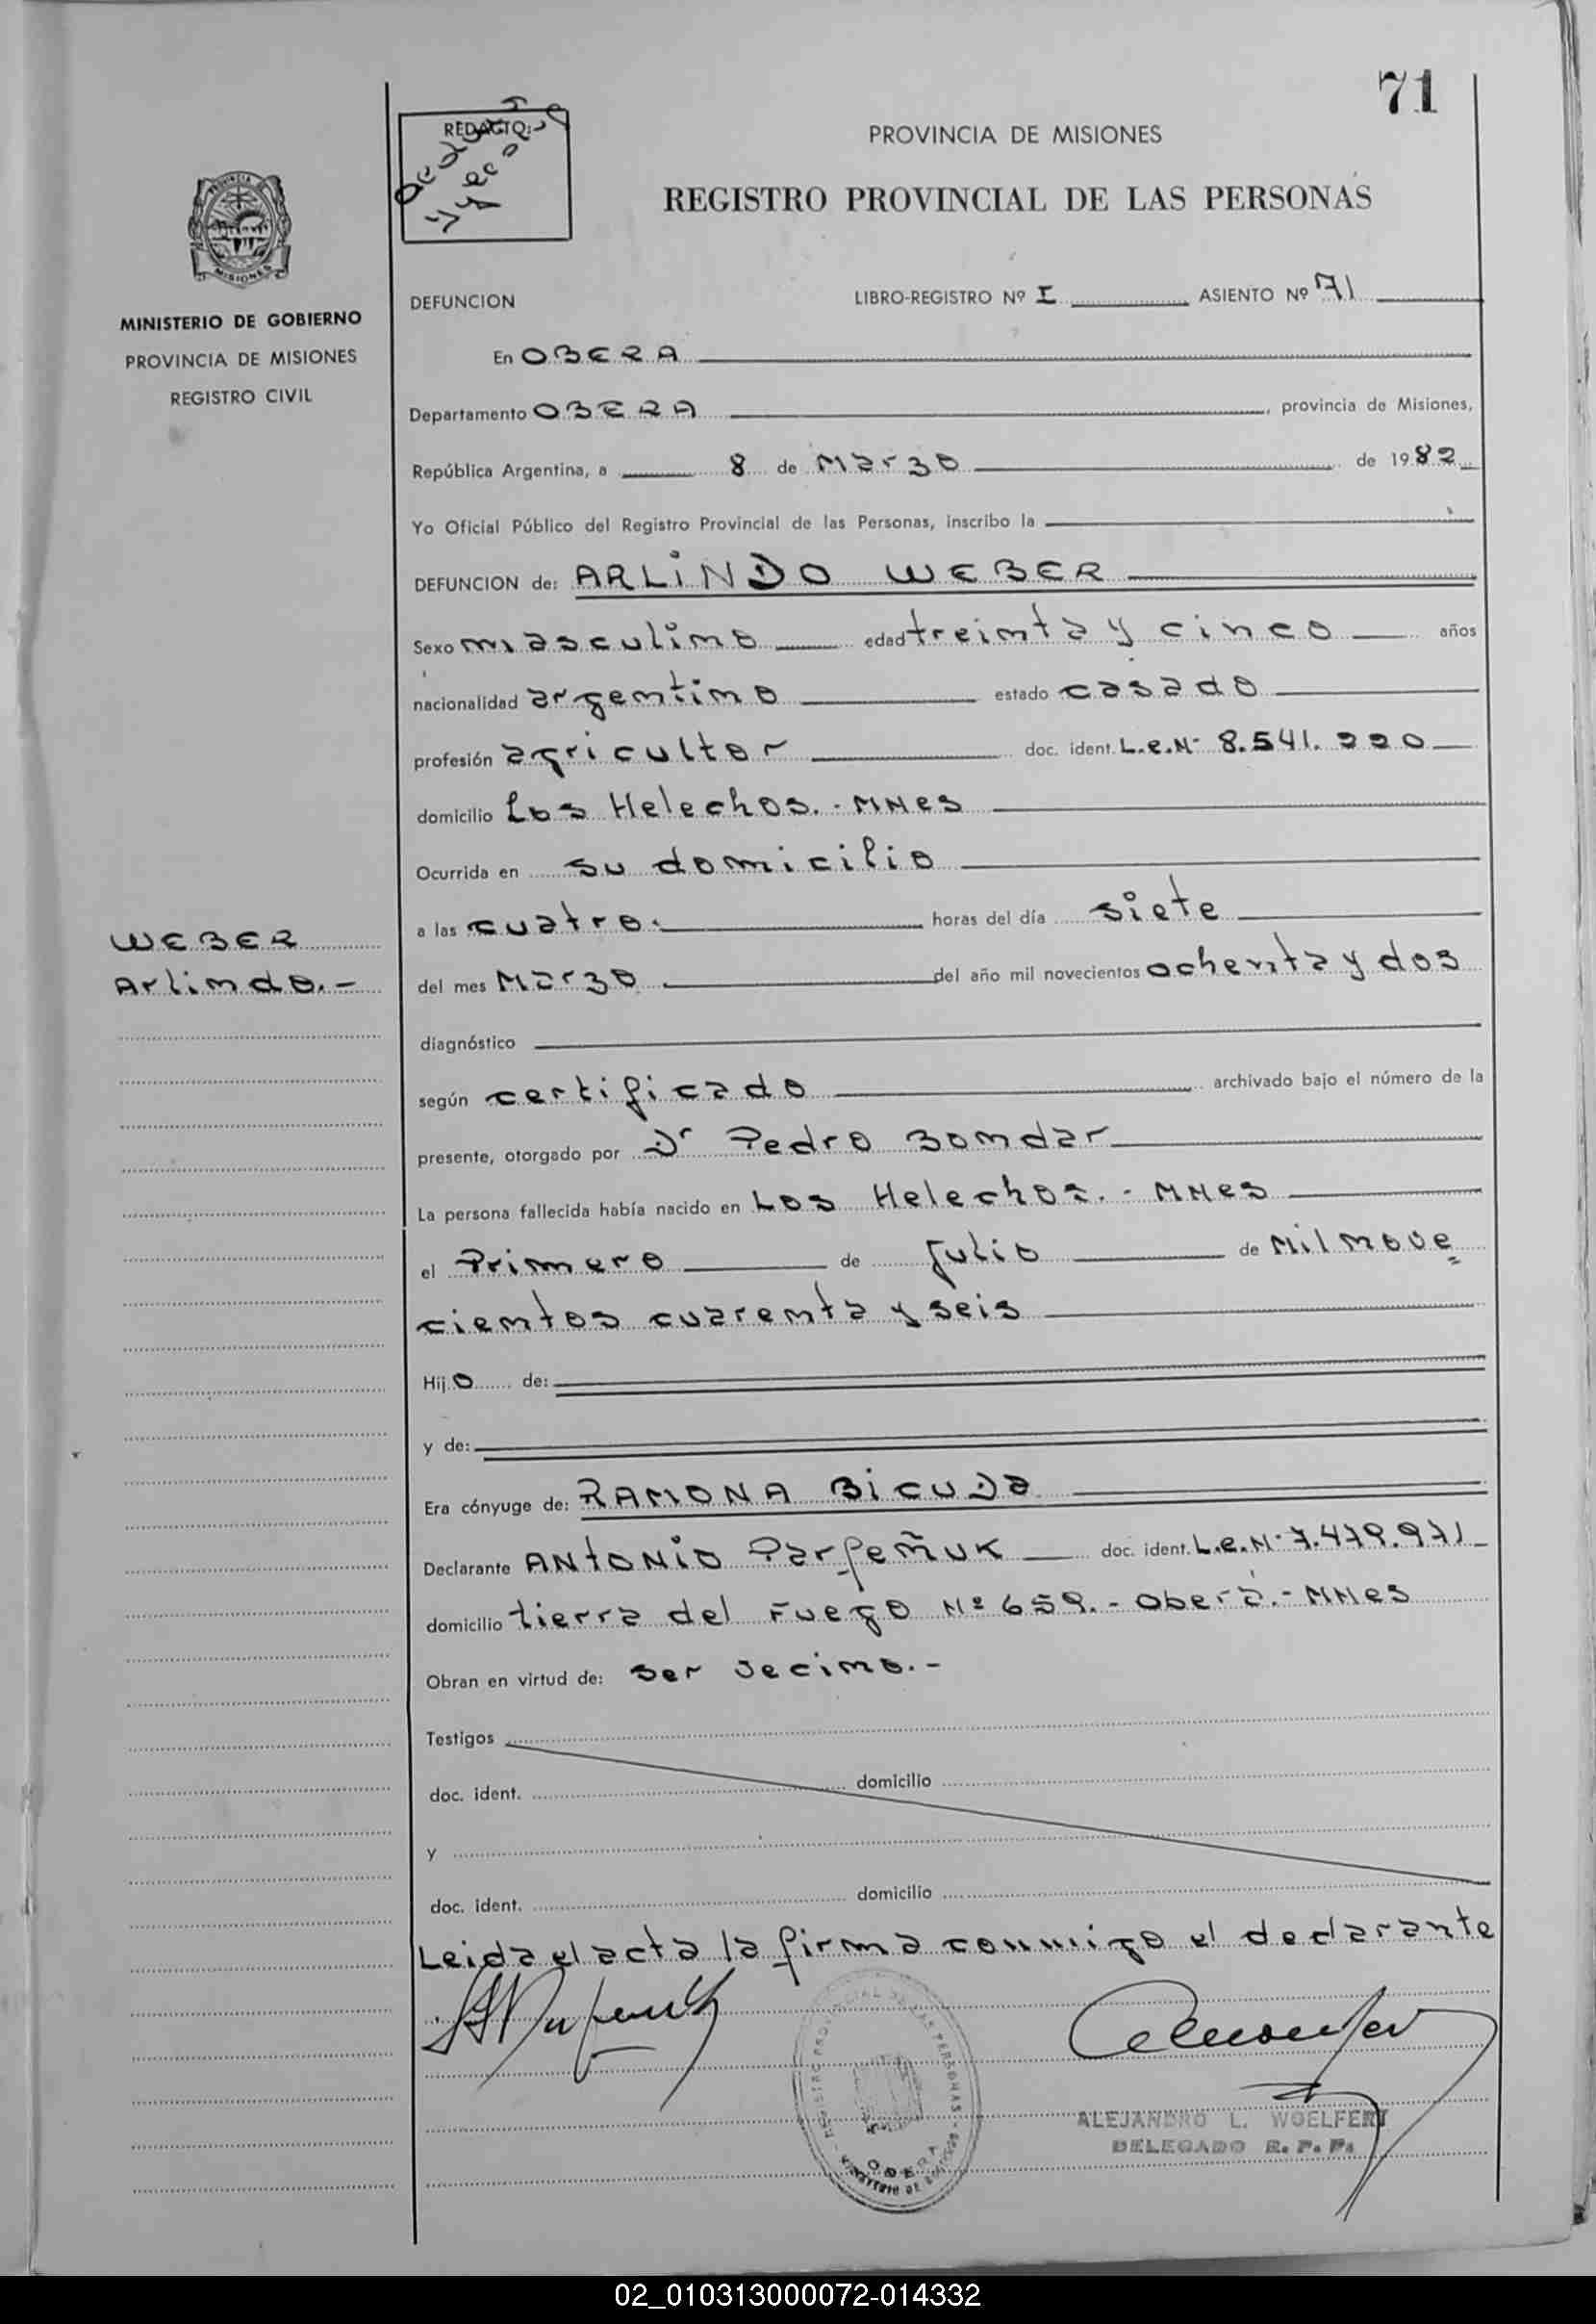 71
REDACTO:
PROVINCIA DE MISIONES
REGISTRO PROVINCIAL DE LAS PERSONAS
PROVINCIA DE
MISIONES
MINISTERIO DE GOBIERNO
PROVINCIA DE MISIONES
REGISTRO CIVIL
DEFUNCION LIBRO-REGISTRO Nº I ASIENTO Nº 71
En OBERA
Departamento OBERA, provincia de Misiones,
República Argentina, a 8 de Marzo de 1982
Yo Oficial Público del Registro Provincial de las Personas, inscribo la
DEFUNCION de: ARLINDO WEBER
Sexo masculino edad treinta y cinco años
nacionalidad argentino estado casado
profesión agricultor doc. ident. L.e.Nº 8.541.220
domicilio Los Helechos.-MNes
Ocurrida en su domicilio
WEBER
Arlindo.-
a las cuatro. horas del día siete
del mes Marzo del año mil novecientos ochenta y dos
diagnóstico
según certificado archivado bajo el número de la
presente, otorgado por Dr Pedro Bondar
La persona fallecida había nacido en Los Helechos.-MNes
el Primero de Julio de Mil nove
cientos cuarenta y seis
Hijo de:
y de:
Era cónyuge de: RAMONA BICUDA
Declarante ANTONIO Parfeñuk doc. ident. L.e.Nº 7.479.971
domicilio tierra del Fuego Nº 659.-Oberá.-MNes
Obran en virtud de: ser vecino.-
Testigos
doc. ident. domicilio
y
doc. ident. domicilio
Leida el acta la firma conmigo el declarante
REGISTRO PROVINCIAL DE LAS PERSONAS
OBERA
MINISTERIO DE GOBIERNO
ALEJANDRO L. WOELFERT
DELEGADO R. P. P.
02_010313000072-014332